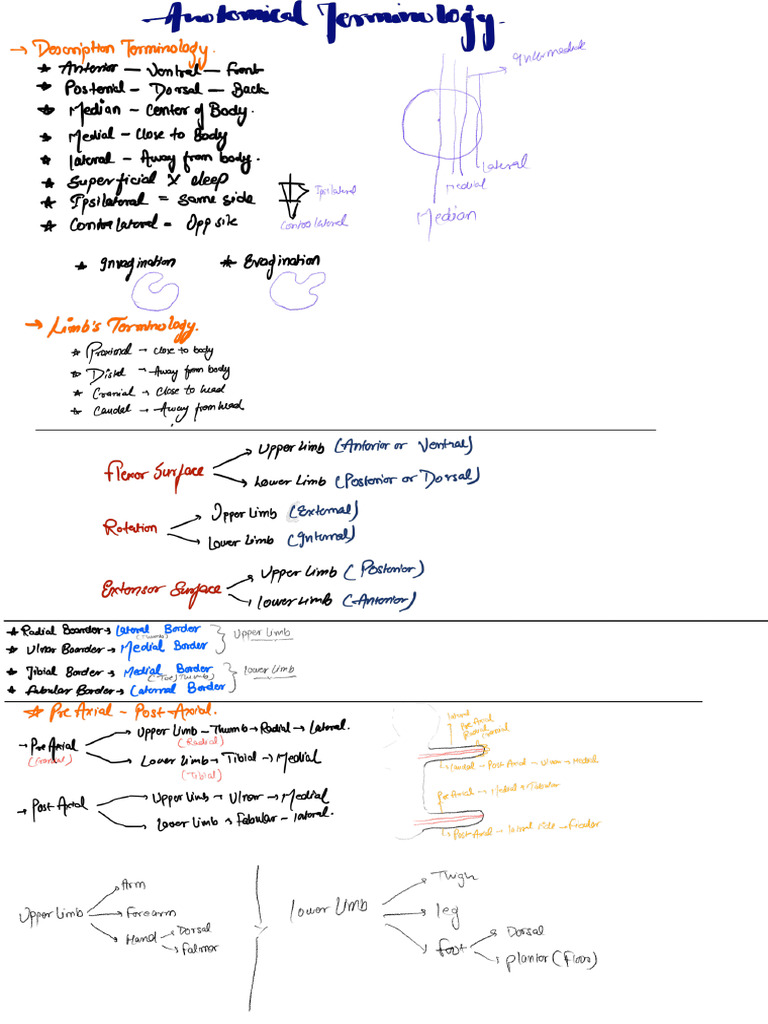 Anatomical Terminology.
→ Description Terminology.
★ Anterior — Ventral — Front
★ Posterial — Dorsal — Back
★ Median - Center of Body.
★ Medial - Close to Body
★ Lateral - Away from body.
★ Superficial X deep
★ Ipsilateral = same side
★ Contralateral = Opp site
Ipsilateral
Contralateral
Intermediate
Lateral
Medial
Median
★ Invagination ★ Evagination
→ Limb's Terminology.
★ Proximal → close to body
★ Distel → Away from body
★ Cranial → Close to head
★ Caudal → Away from head
Flexor Surface
Upper Limb (Anterior or Ventral)
Lower Limb (Posterior or Dorsal)
Rotation
Upper Limb (External)
Lower Limb (Internal)
Extensor Surface
Upper Limb (Posterior)
Lower Limb (Anterior)
★ Radial Boarder → Lateral Border
(Thumb)
★ Ulnar Boarder → Medial Border
Upper Limb
★ Tibial Border → Medial Border
★ Fabular Border → Laternal Border
Lower Limb
★ Pre Axial - Post-Axial.
→ Pre Axial
(Cranial)
Upper Limb - Thumb → Radial → Lateral.
(Radial)
Lower Limb → Tibial → Medial
(Tibial)
→ Post Axial
Upper Limb → Ulnar → Medial
Lower Limb → Fabular - lateral.
lateral
Pre Axial
Caudal - Post Axial - Ulnar → Medial
Pre Axial → Medial
Post Axial → lateral side
Upper Limb
Arm
Forearm
Hand
Dorsal
Palmer
lower Limb
Thigh
leg
foot
Dorsal
planter (Floor)